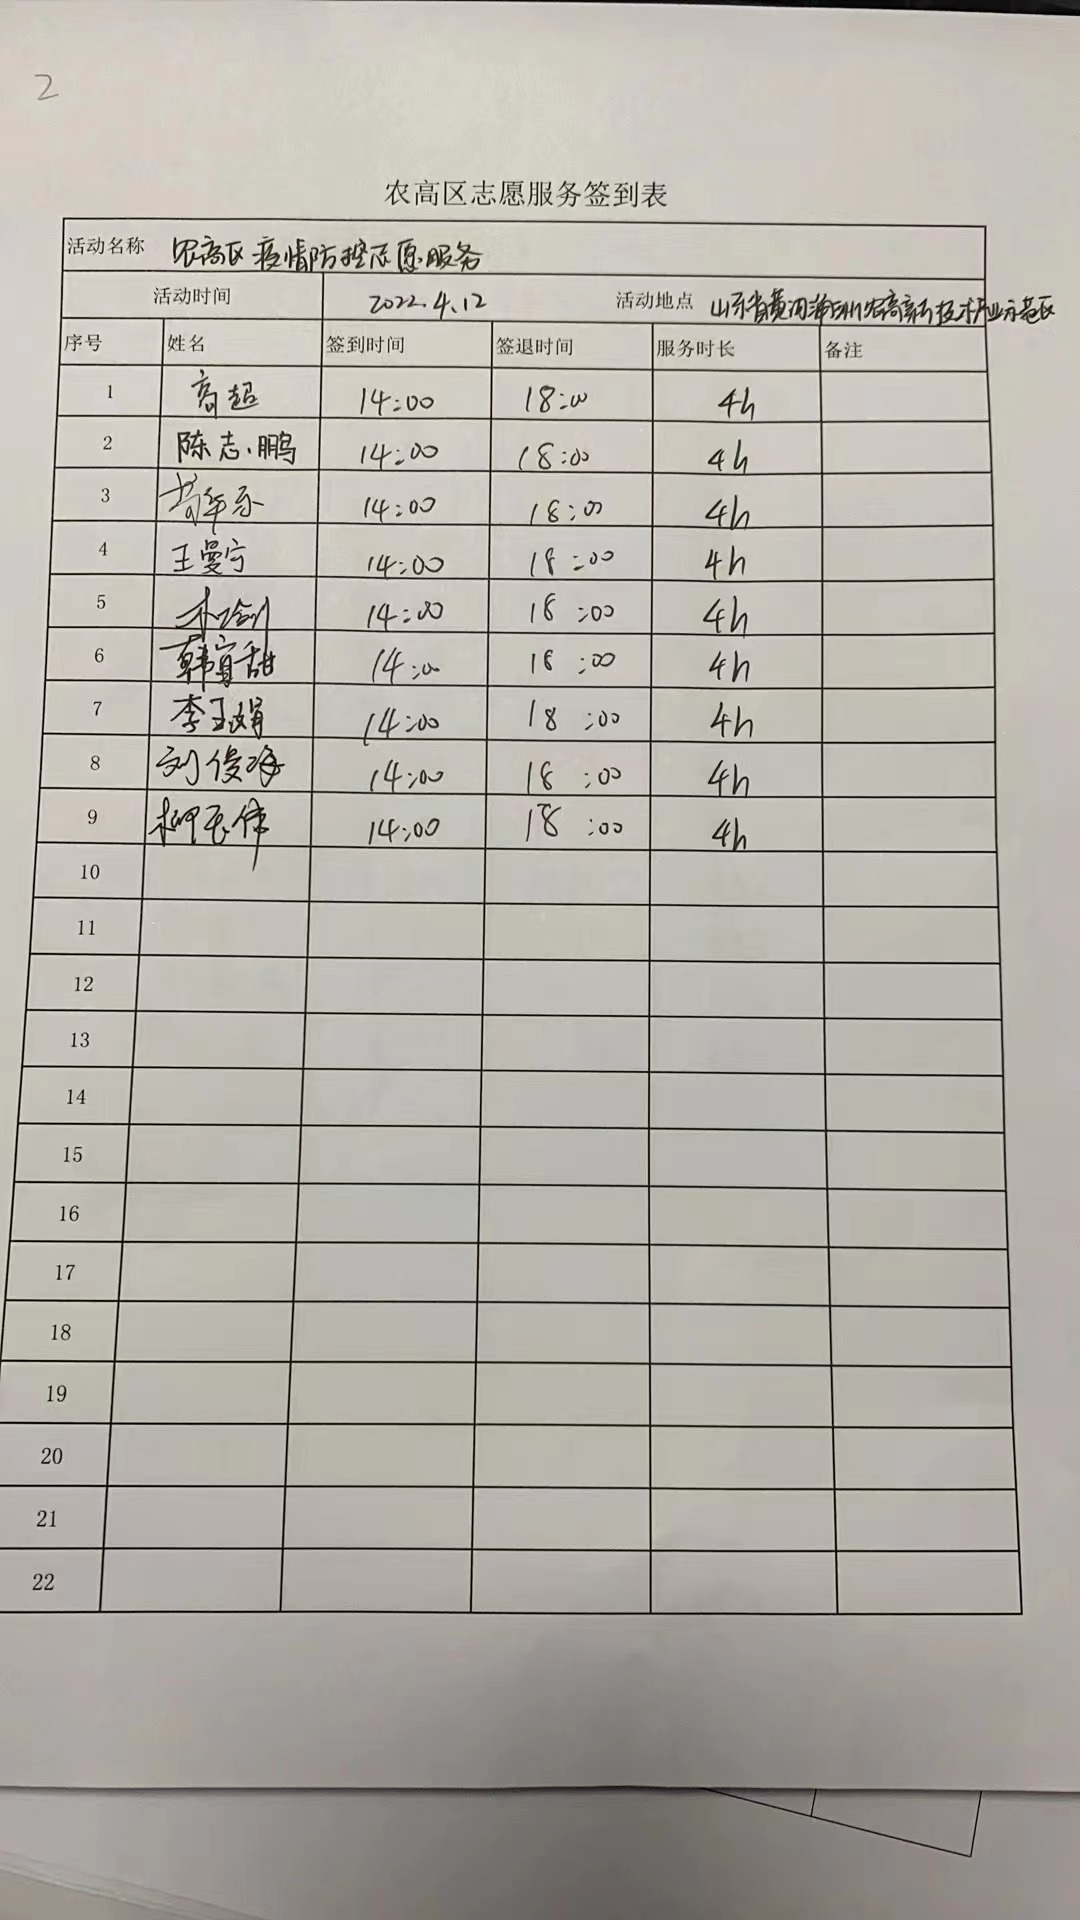 2
农高区志愿服务签到表
活动名称 农高区疫情防控志愿服务
活动时间 2022.4.12 活动地点 山东省黄河三角洲农高新技术产业示范区
序号 姓名 签到时间 签退时间 服务时长 备注
1 高超 14:00 18:00 4h
2 陈志鹏 14:00 18:00 4h
3 14:00 18:00 4h
4 王曼宁 14:00 18:00 4h
5 14:00 18:00 4h
6 韩宜甜 14:00 18:00 4h
7 李玉娟 14:00 18:00 4h
8 刘俊 14:00 18:00 4h
9 柳玉伟 14:00 18:00 4h
10
11
12
13
14
15
16
17
18
19
20
21
22